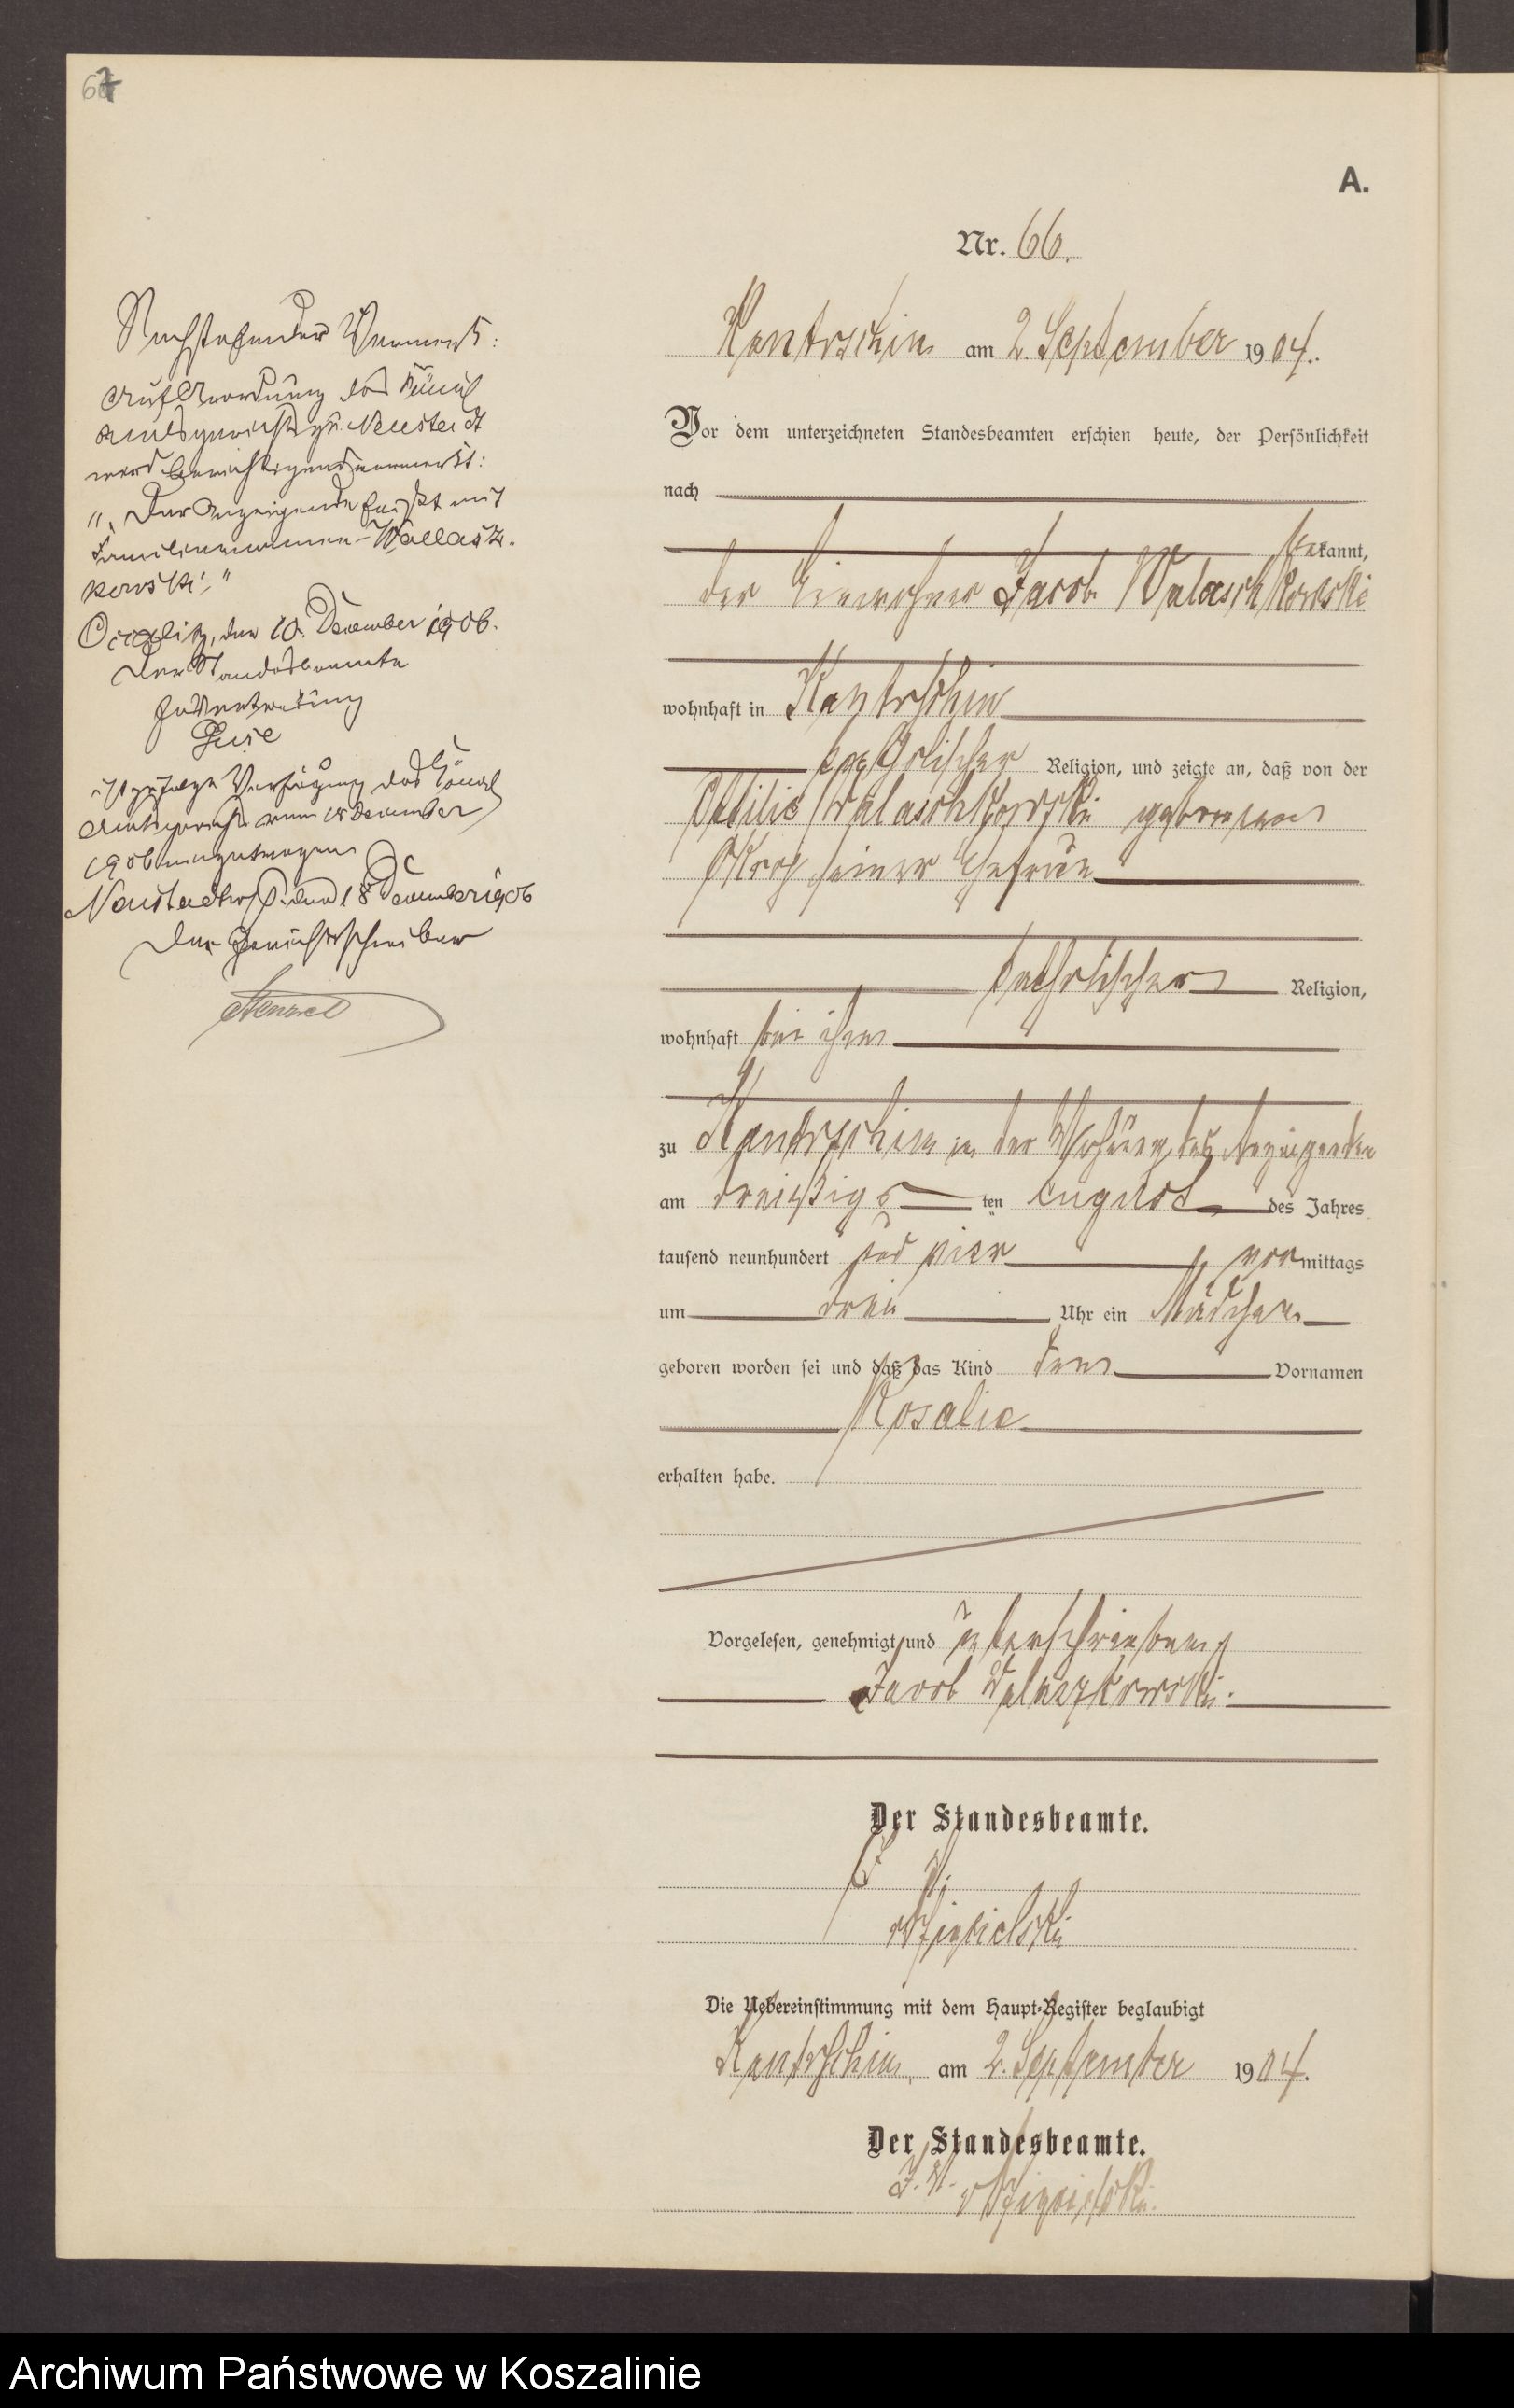 67
A.
Nr. 66.
Kantrschin am 2. September 1904.
Vor dem unterzeichneten Standesbeamten erschien heute, der Persönlichkeit
nach
bekannt,
der Einwohner Jacob Walaschkowski
wohnhaft in Kantrschin
katholischer Religion, und zeigte an, daß von der
Ottilie Walaschkowski geborenen
seiner Ehefrau
katholischer Religion,
wohnhaft bei ihm
zu Kantrschin in der Wohnung des Anzeigenden
am dreißigsten August des Jahres
tausend neunhundert und vier, vormittags
um drei Uhr ein Mädchen
geboren worden sei und daß das Kind den Vornamen
Rosalie
erhalten habe.
Vorgelesen, genehmigt und unterschrieben
Jacob Walaszkowski.
Der Standesbeamte.
J. V.
Die Uebereinstimmung mit dem Haupt-Register beglaubigt
Kantrschin, am 2. September 1904.
Der Standesbeamte.
J. V.
Nachstehender Vermerk:
Auf Anordnung des Königl
Amtsgerichts zu Neustadt
wird berichtigend vermerkt:
"Der Anzeigende heißt mit
Familiennamen Wallasz-
kowski."
den 10. Dezember 1906.
Der Standesbeamte
In Vertretung
ist zufolge Verfügung des Königl
Amtsgerichts vom 15 Dezember
1906 eingetragen
Neustadt den 18 Dezember 1906
Der Gerichtsschreiber
Archiwum Państwowe w Koszalinie